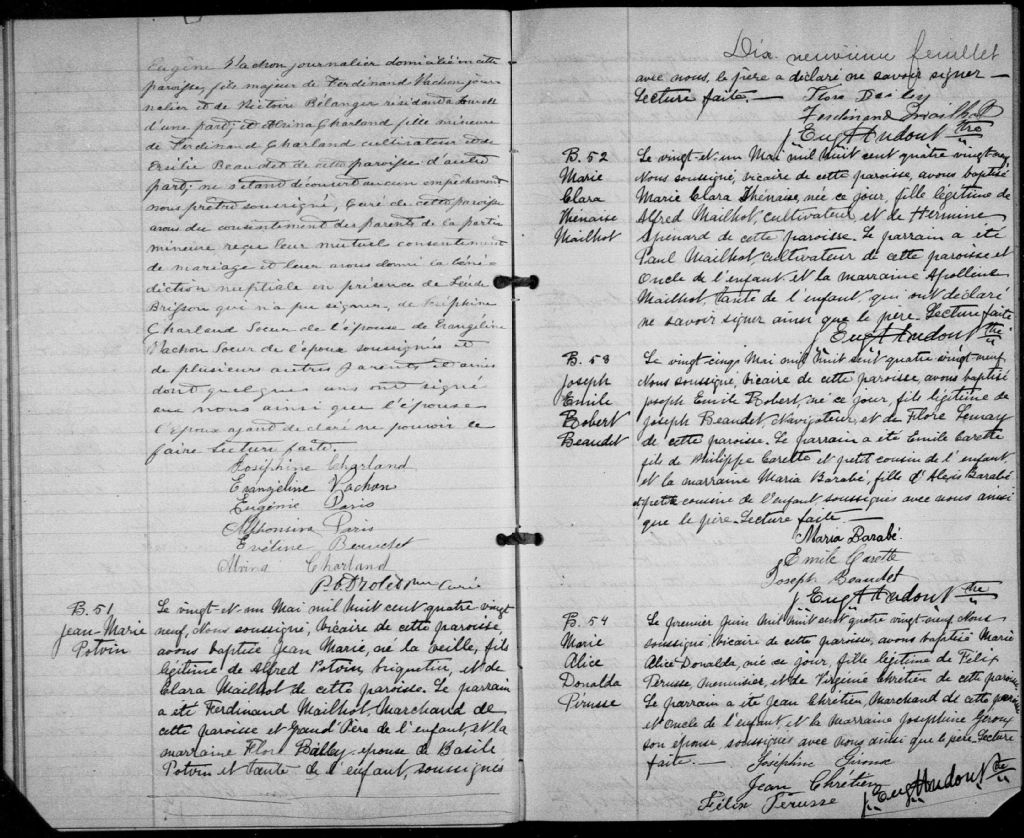 Eugène Vachon journalier domicilié en cette
paroisse, fils majeur de Ferdinand Vachon jour-
nalier et de Victoire Bélanger résidant à
d'une part; et Alvina Charland fille mineure
de Ferdinand Charland cultivateur et de
Beaudet de cette paroisse d'autre
part; ne s'étant découvert aucun empêchement
nous prêtre soussigné, Curé de cette paroisse
avons du consentement des parents de la partie
mineure reçu leur mutuel consentement
de mariage et leur avons donné la béné-
diction nuptiale en présence de
Brisson qui n'a pu signer, de Joséphine
Charland Soeur de l'épouse de Evangéline
Vachon Soeur de l'époux soussignés et
de plusieurs autres parents et amis
dont quelques uns ont signé
avec nous ainsi que l'épouse
l'époux ayant déclaré ne pouvoir le
faire. Lecture faite.
Joséphine Charland
Evangéline Vachon
Eugénie Paris
Alphonsine Paris
Evéline Beaudet
Alvina Charland
P. O. Drolet ptre Curé
B. 51
Jean-Marie
Potvin
Le vingt-et-un Mai mil huit cent quatre vingt
neuf, Nous soussigné, Vicaire de cette paroisse,
avons baptisé Jean Marie, né la veille, fils
légitime de Alfred Potvin, briquetier, et de
Clara Mailhot de cette paroisse. Le parrain
a été Ferdinand Mailhot, Marchand de
cette paroisse et Grand'Père de l'enfant, et la
marraine Flore épouse de Basile
Potvin et tante de l'enfant, soussignés
Dix neuvième feuillet
avec nous, le père a déclaré ne savoir signer —
Lecture faite. — Flore
Ferdinand Mailhot
Eug Audout Ptre
B. 52
Marie
Clara
Thénaise
Mailhot
Le vingt-et-un Mai mil huit cent quatre vingt-neuf,
Nous soussigné, vicaire de cette paroisse, avons baptisé
Marie Clara Thénaise, née ce jour, fille légitime de
Alfred Mailhot, cultivateur, et de Hermine
Spénard de cette paroisse. Le parrain a été
Paul Mailhot cultivateur de cette paroisse et
Oncle de l'enfant et la marraine Apolline
Mailhot tante de l'enfant qui ont déclaré
ne savoir signer ainsi que le père. Lecture faite
Eug Audout Ptre
B. 53
Joseph
Emile
Robert
Beaudet
Le vingt-cinq Mai mil huit cent quatre vingt-neuf,
Nous soussigné, Vicaire de cette paroisse, avons baptisé
Joseph Emile Robert, né ce jour, fils légitime de
Joseph Beaudet, Navigateur, et de Flore Lemay
de cette paroisse. Le parrain a été Emile Carette
fils de Philippe Carette et petit cousin de l'enfant
et la marraine Maria Barabé, fille d'Alexis Barabé
et petite cousine de l'enfant soussignés avec nous ainsi
que le père. Lecture faite —
Maria Barabé.
Emile Carette
Joseph Beaudet
Eug Audout Ptre
B. 54
Marie
Alice
Donalda
Pérusse
Le premier Juin mil huit cent quatre vingt-neuf Nous
soussigné, Vicaire de cette paroisse, avons baptisé Marie
Alice Donalda, née ce jour, fille légitime de Félix
Pérusse, Menuisier, et de Virginie Chrétien de cette paroisse
Le parrain a été Jean Chrétien, Marchand de cette paroisse
et Oncle de l'enfant et la Marraine Joséphine Giroux
son épouse, soussignés avec nous ainsi que le père. Lecture
faite. — Joséphine Giroux
Jean Chrétien
Félix Pérusse Eug Audout Ptre